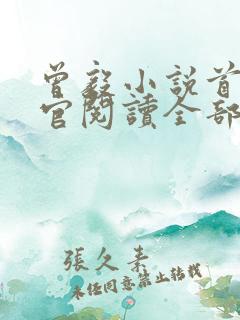 曾毅小說首
官閱讀全部
張久素
未任同意禁止转载